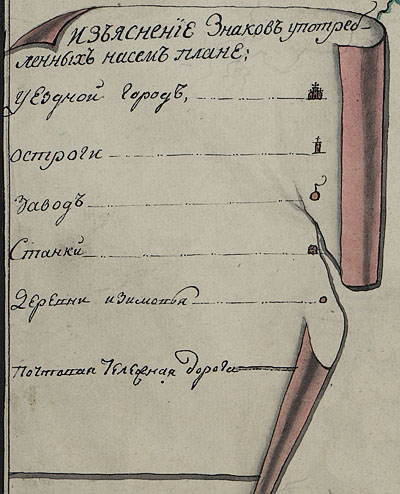 Изъясненіе Знаковъ употреб-
ленныхъ на семъ плане:
уездной городъ,
остроги
Заводъ
Станки
Деревни и зимовья
Почтовая Тележная дорога